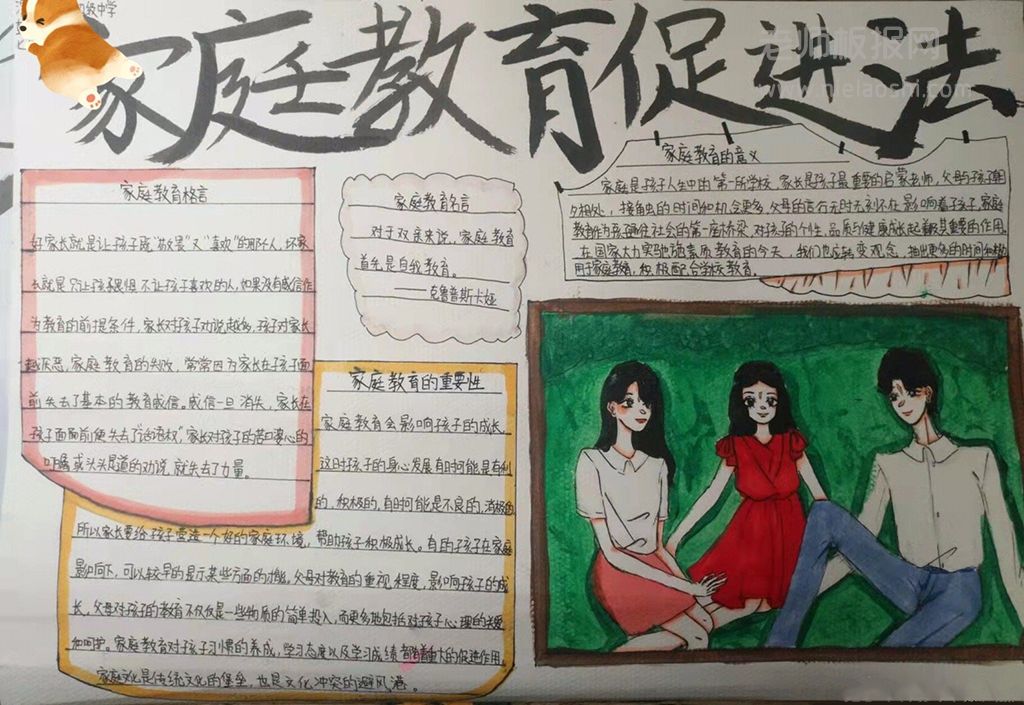 初级中学
家庭教育促进法
老师板报网
www.nielaoshi.com
家庭教育格言
好家长就是让孩子既"敬畏"又"喜欢"的那个人,坏家
长就是只让孩子畏惧不让孩子喜欢的人,如果没有威信作
为教育的前提条件,家长对孩子劝说越多,孩子对家长
越厌恶,家庭教育的失败,常常因为家长在孩子面
前失去了基本的教育威信。威信一旦消失,家长在
孩子面前便失去了"话语权",家长对孩子的苦口婆心的
叮嘱或头头是道的劝说,就失去了力量。
家庭教育名言
对于双亲来说,家庭教育
首先是自我教育。
——克鲁普斯卡娅
家庭教育的意义
家庭是孩子人生中的第一所学校,家长是孩子最重要的启蒙老师,父母与孩子朝
夕相处,接触的时间和机会更多,父母的言行无时无刻不在影响着孩子,家庭
教育作为孩子通往社会的第一座桥梁,对孩子的个性、品质与健康成长起着极其重要的作用。
在国家大力实施素质教育的今天,我们也应转变观念,抽出更多的时间和精力
用于家庭教育,积极配合学校教育。
家庭教育的重要性
家庭教育会影响孩子的成长,
这时孩子的身心发展有时可能是有利
的,积极的,有时可能是不良的,消极的
所以家长要给孩子营造一个好的家庭环境,帮助孩子积极成长。有的孩子在家庭
影响下,可以较早的显示某些方面的才能,父母对教育的重视程度,影响孩子的成
长,父母对孩子的教育不仅仅是一些物质的简单投入,而更多地包括对孩子心理的关爱
和呵护。家庭教育对孩子习惯的养成,学习态度以及学习成绩都有着重大的促进作用。
家庭文化是传统文化的堡垒,也是文化冲突的避风港。